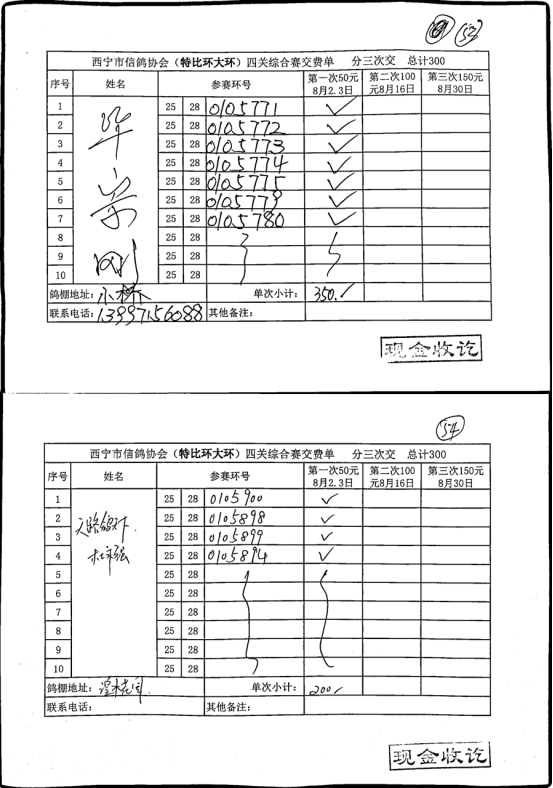 53
西宁市信鸽协会（特比环大环）四关综合赛交费单 分三次交 总计300
序号 姓名 参赛环号 第一次50元 8月2.3日 第二次100元8月16日 第三次150元 8月30日
1 25 28 0105771 ✓
2 25 28 0105772 ✓
3 25 28 0105773 ✓
4 25 28 0105774 ✓
5 25 28 0105775 ✓
6 25 28 ✓
7 25 28 0105780 ✓
8 25 28
9 25 28
10 25 28
鸽棚地址：小桥 单次小计：350.
联系电话：13997156088 其他备注：
现金收讫
54
西宁市信鸽协会（特比环大环）四关综合赛交费单 分三次交 总计300
序号 姓名 参赛环号 第一次50元 8月2.3日 第二次100元8月16日 第三次150元 8月30日
1 25 28 0105900 ✓
2 25 28 0105898 ✓
3 25 28 0105899 ✓
4 25 28 0105894 ✓
5 25 28
6 25 28
7 25 28
8 25 28
9 25 28
10 25 28
鸽棚地址： 单次小计：200
联系电话： 其他备注：
现金收讫